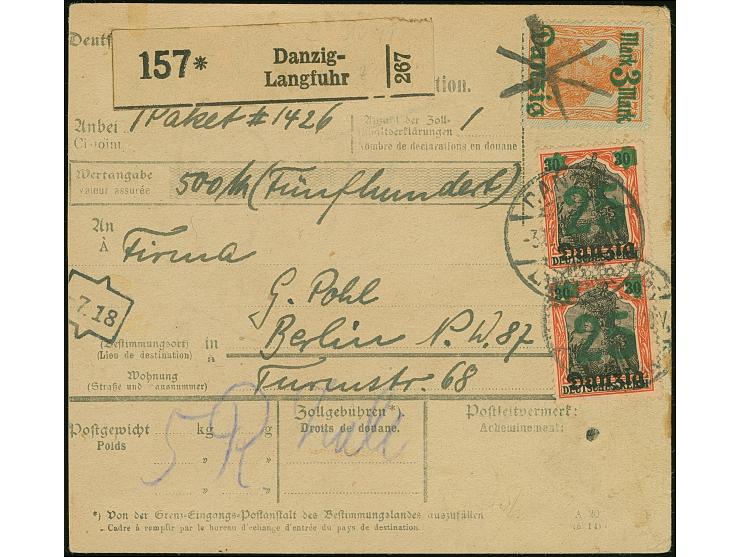 Deutſ
157* Danzig-
Langfuhr 267
tion.
Mark 3 Mark
Danzig
Anbei 1 Paket # 1426
Ci-joint
Anzahl der Zoll-
inhaltserklärungen 1
Nombre de déclarations en douane
Wertangabe
Valeur assurée
500 M (Fünfhundert)
30 30
25
Danzig
An
À
Firma
G. Pohl
7.18
30 30
25
Danzig
(Bestimmungsort) in
(Lieu de destination) à
Berlin N.W. 87
Wohnung
(Straße und Hausnummer)
Turmstr. 68
Postgewicht kg g
Poids
5
Zollgebühren*).
Droits de douane.
Postleitvermerk:
Acheminement:
*) Von der Grenz-Eingangs-Postanstalt des Bestimmungslandes auszufüllen
- Cadre à remplir par le bureau d'échange d'entrée du pays de destination.
A. 20